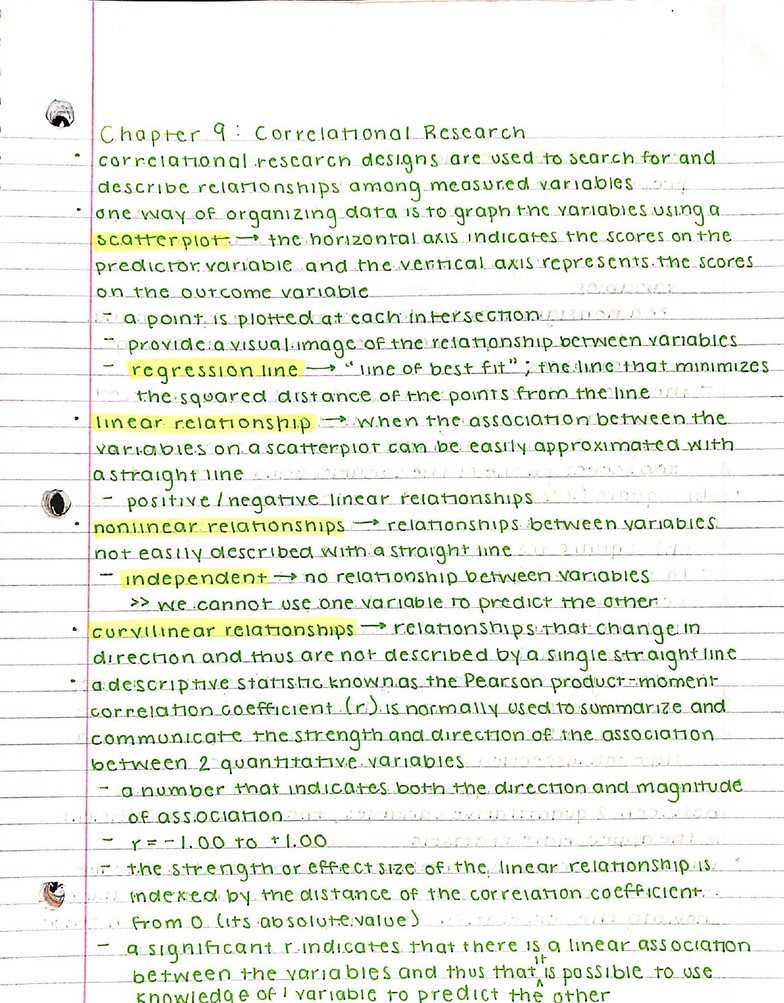 Chapter 9: Correlational Research
• correlational research designs are used to search for and
describe relationships among measured variables
• one way of organizing data is to graph the variables using a
scatterplot → the horizontal axis indicates the scores on the
predictor variable and the vertical axis represents the scores
on the outcome variable
- a point is plotted at each intersection
- provide a visual image of the relationship between variables
- regression line → "line of best fit"; the line that minimizes
the squared distance of the points from the line
• linear relationship → when the association between the
variables on a scatterplot can be easily approximated with
a straight line
- positive/negative linear relationships
• nonlinear relationships → relationships between variables
not easily described with a straight line
- independent → no relationship between variables
>> we cannot use one variable to predict the other
• curvilinear relationships → relationships that change in
direction and thus are not described by a single straight line
• a descriptive statistic known as the Pearson product-moment
correlation coefficient (r) is normally used to summarize and
communicate the strength and direction of the association
between 2 quantitative variables
- a number that indicates both the direction and magnitude
of association
- r = -1.00 to +1.00
- the strength or effect size of the linear relationship is
indexed by the distance of the correlation coefficient
from 0 (its absolute value)
- a significant r indicates that there is a linear association
between the variables and thus that it is possible to use
knowledge of 1 variable to predict the other